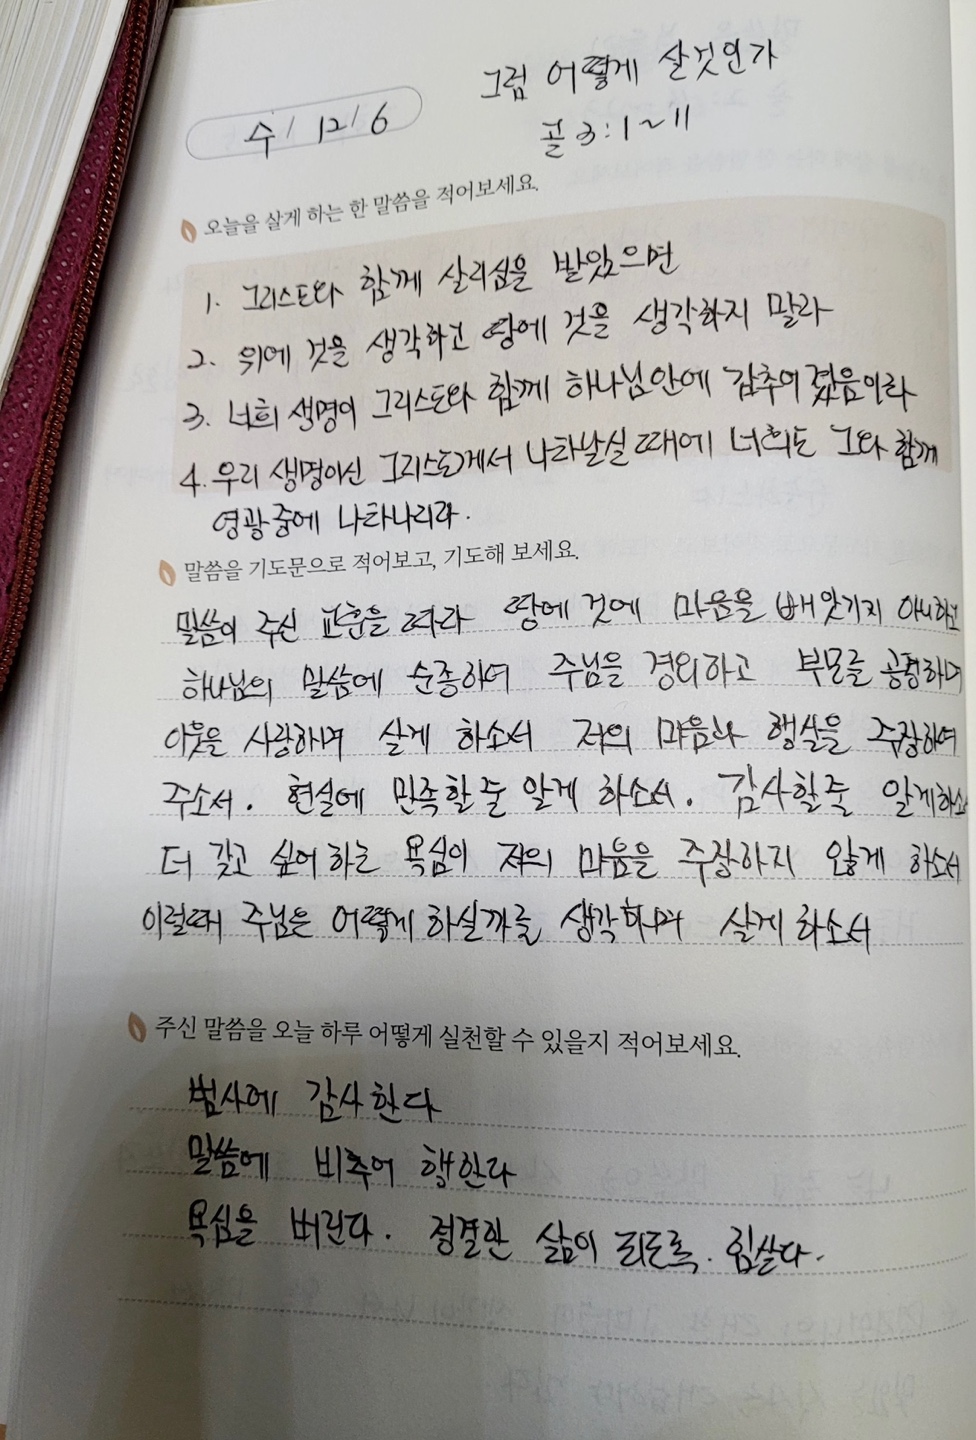 그럼 어떻게 살것인가
수 / 12 / 6
골 3:1~11
오늘을 살게 하는 한 말씀을 적어보세요.
1. 그리스도와 함께 살리심을 받았으면
2. 위에 것을 생각하고 땅에 것을 생각하지 말라
3. 너희 생명이 그리스도와 함께 하나님안에 감추어 졌음이라
4. 우리 생명이신 그리스도께서 나타날실 때에 너희도 그와 함께
영광중에 나타나리라.
말씀을 기도문으로 적어보고, 기도해 보세요.
말씀이 주신 교훈을 따라 땅에 것에 마음을 빼앗기지 아니하고
하나님의 말씀에 순종하여 주님을 경외하고 부모를 공평하며
이웃을 사랑하며 살게 하소서 저의 마음과 행실을 주장하여
주소서. 현실에 만족할줄 알게 하소서. 감사할줄 알게하소
더 갖고 싶어 하는 욕심이 저의 마음을 주장하지 않게 하소서
이럴때 주님은 어떻게 하실까를 생각하며 살게 하소서
주신 말씀을 오늘 하루 어떻게 실천할 수 있을지 적어보세요.
범사에 감사한다
말씀에 비추어 행한다
욕심을 버린다. 정결한 삶이 되도록. 힘쓴다.